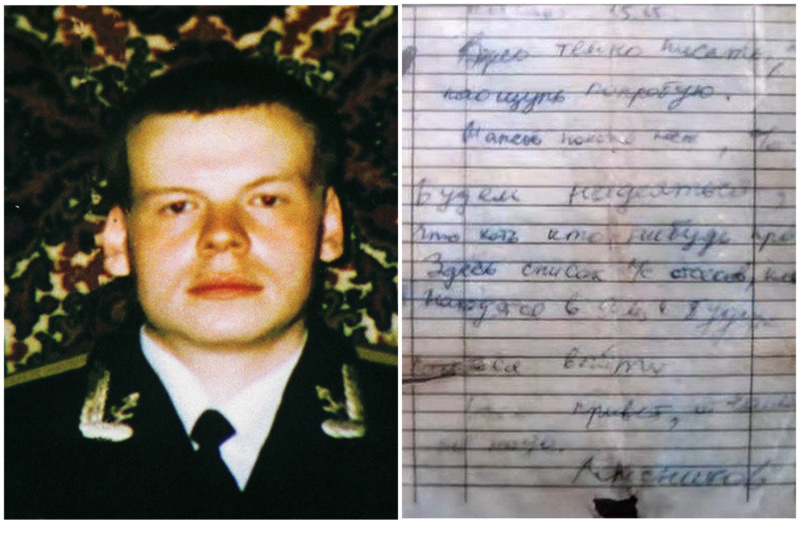 темно писать,
на ощупь попробую.
Шансов похоже нет, %
Будем надеяться,
что хоть кто нибудь про
Здесь список л/с отсеков,
находятся в и будут
выйти
привет,
не надо.
Колесников